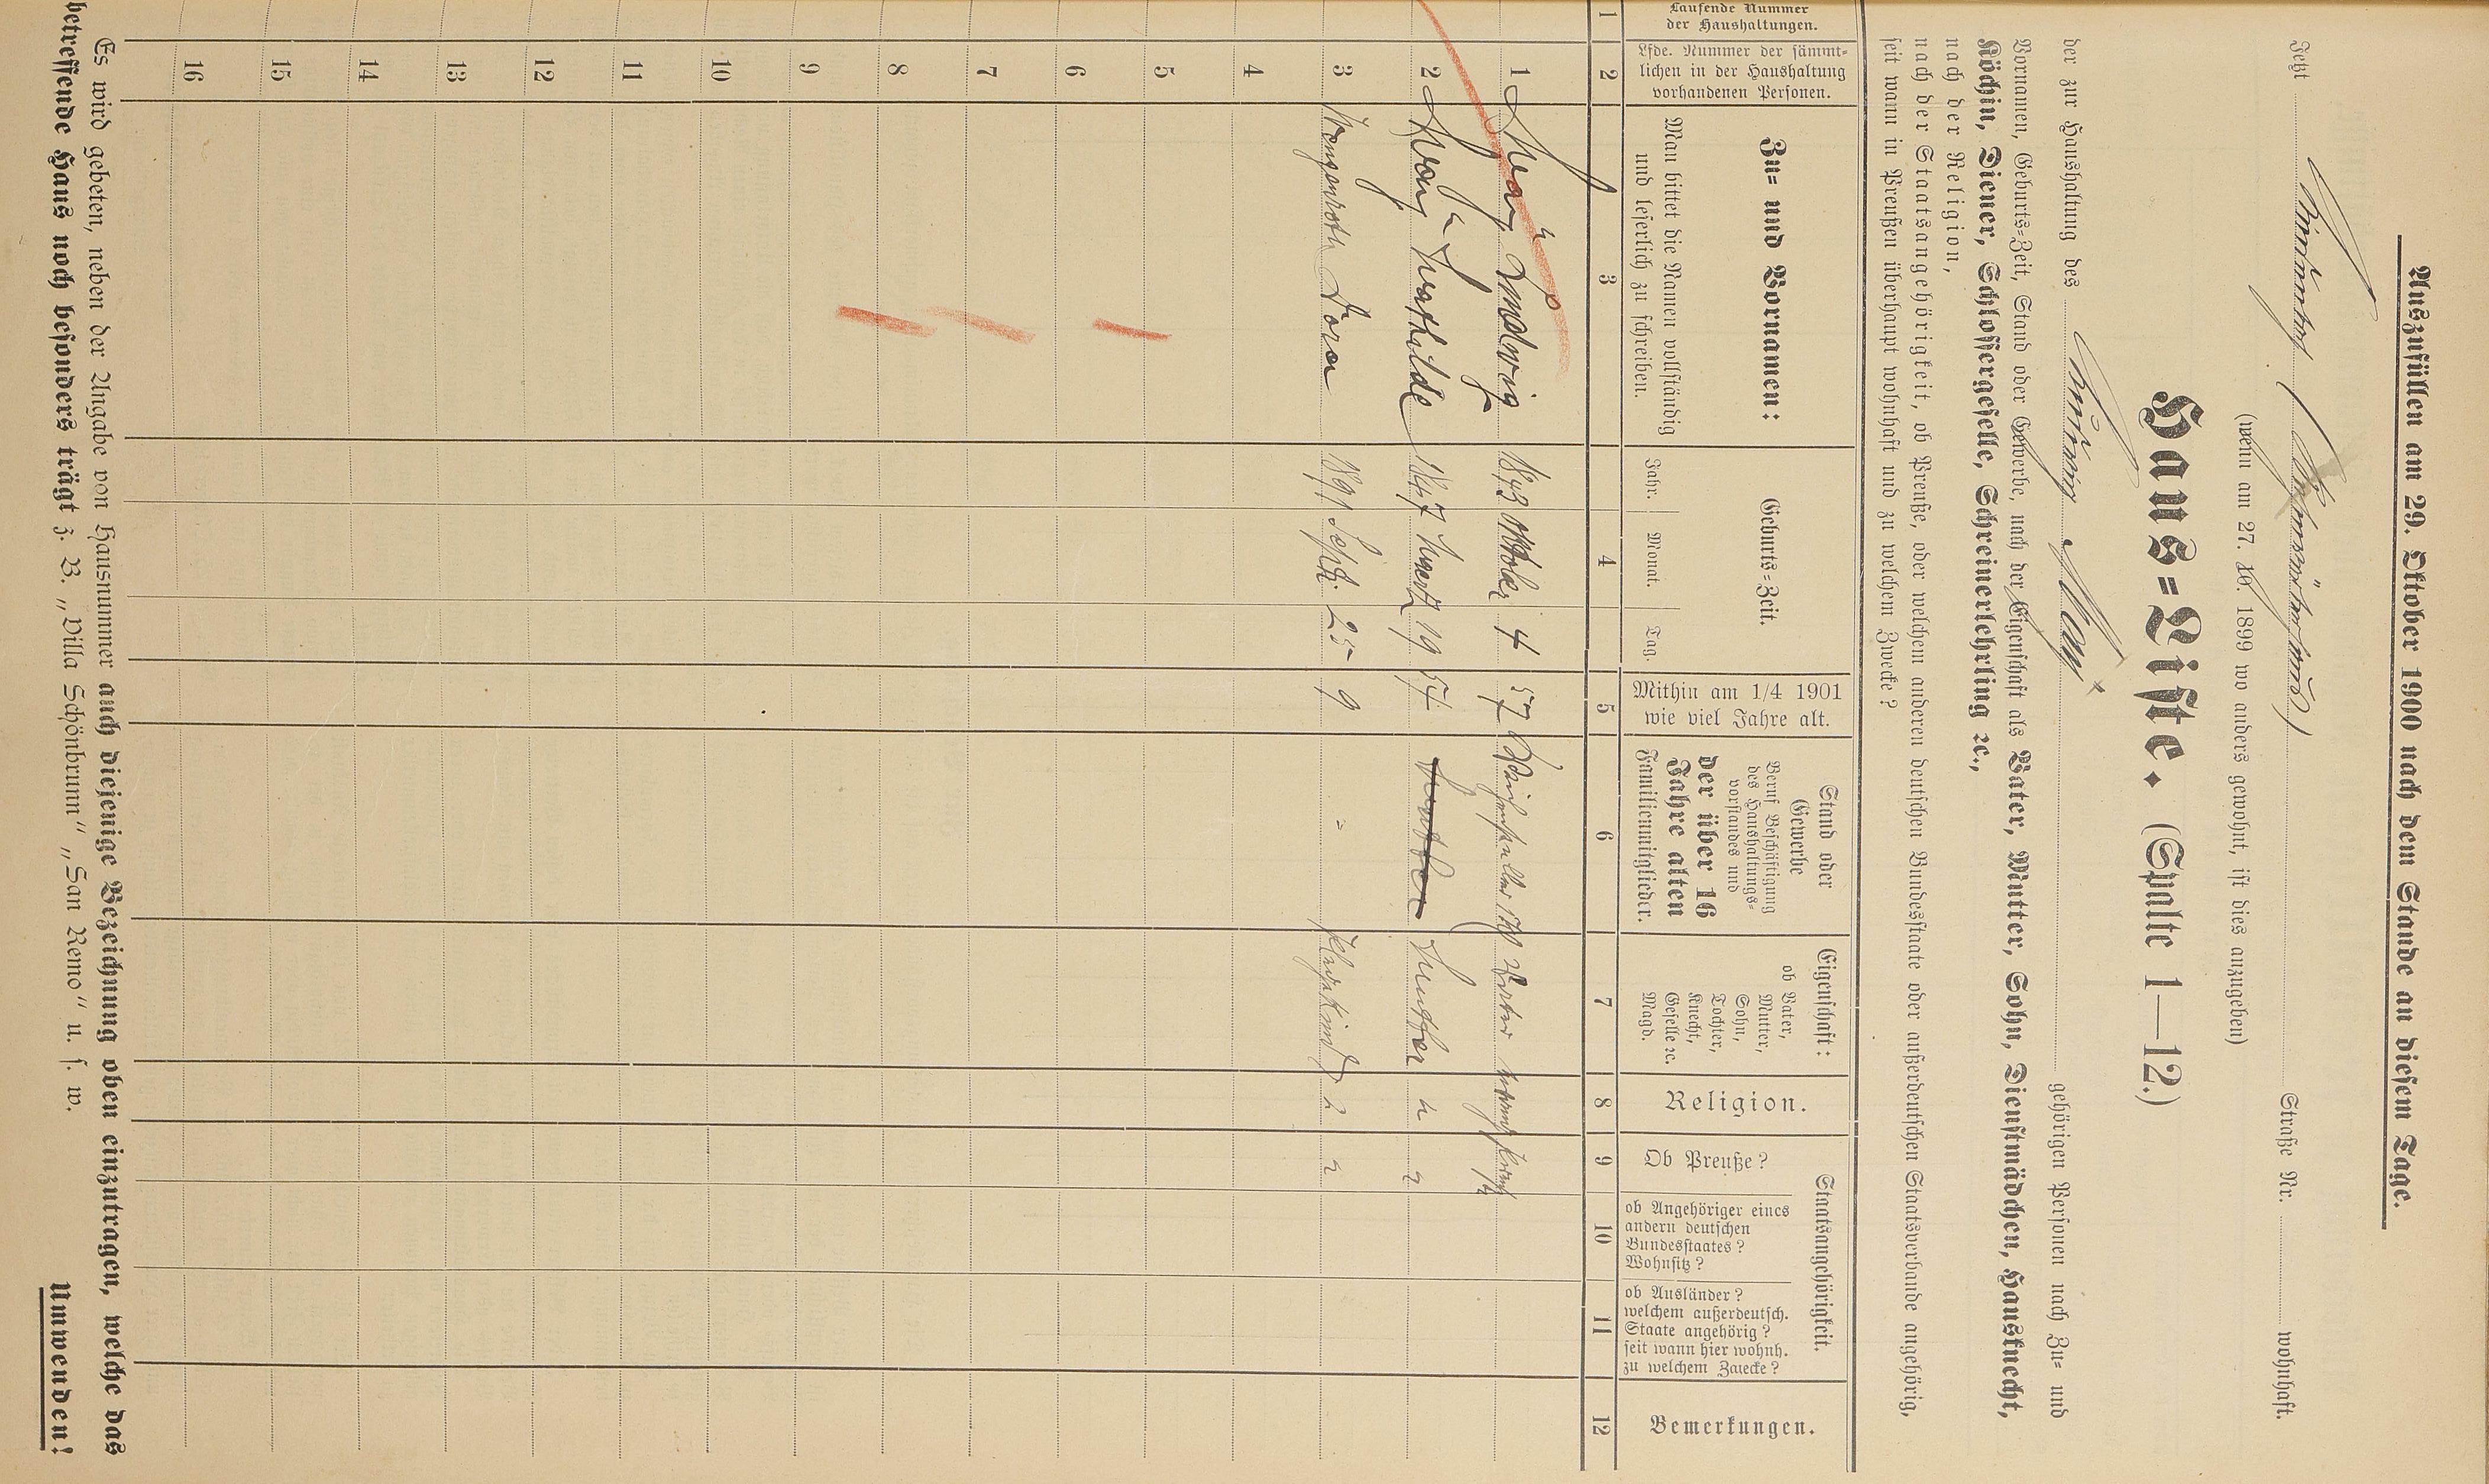 Auszufüllen am 29. Oktober 1900 nach dem Stande an diesem Tage.
Jetzt Straße Nr. wohnhaft.
(wenn am 27. 10. 1899 wo anders gewohnt, ist dies anzugeben)
Haus=Liste. (Spalte 1—12.)
der zur Haushaltung des Ludwig May gehörigen Personen nach Zu= und
Vornamen, Geburts=Zeit, Stand oder Gewerbe, nach der Eigenschaft als Vater, Mutter, Sohn, Dienstmädchen, Hausknecht,
Köchin, Diener, Schlossergeselle, Schreinerlehrling ꝛc.,
nach der Religion,
nach der Staatsangehörigkeit, ob Preuße, oder welchem anderen deutschen Bundesstaate oder außerdeutschen Staatsverbande angehörig,
seit wann in Preußen überhaupt wohnhaft und zu welchem Zwecke?
Laufende Nummer
der Haushaltungen.
Lfde. Nummer der sämmt=
lichen in der Haushaltung
vorhandenen Personen.
Zu= und Vornamen:
Man bittet die Namen vollständig
und leserlich zu schreiben.
Geburts=Zeit.
Jahr. Monat. Tag.
Mithin am 1/4 1901
wie viel Jahre alt.
Stand oder
Gewerbe
Beruf Beschäftigung
des Haushaltungs=
vorstandes und
der über 16
Jahre alten
Familienmitglieder.
Eigenschaft:
ob Vater,
Mutter,
Sohn,
Tochter,
Knecht,
Geselle ꝛc.
Magd.
Religion.
Staatsangehörigkeit.
Ob Preuße?
ob Angehöriger eines
andern deutschen
Bundesstaates?
Wohnsitz?
ob Ausländer?
welchem außerdeutsch.
Staate angehörig?
seit wann hier wohnh.
zu welchem Zwecke?
Bemerkungen.
1 2 3 4 5 6 7 8 9 10 11 12
1 May Ludwig 1843 Oktober 4 57 Vater
2 May Mathilde 1847 Maerz 19 54 Mutter Mutter "
3 Dora 1891 Septb. 25 9 = Pflegekind " "
4
5
6
7
8
9
10
11
12
13
14
15
16
Es wird gebeten, neben der Angabe von Hausnummer auch diejenige Bezeichnung oben einzutragen, welche das
betreffende Haus noch besonders trägt z. B. „Villa Schönbrunn“ „San Remo“ u. s. w.
Umwenden!